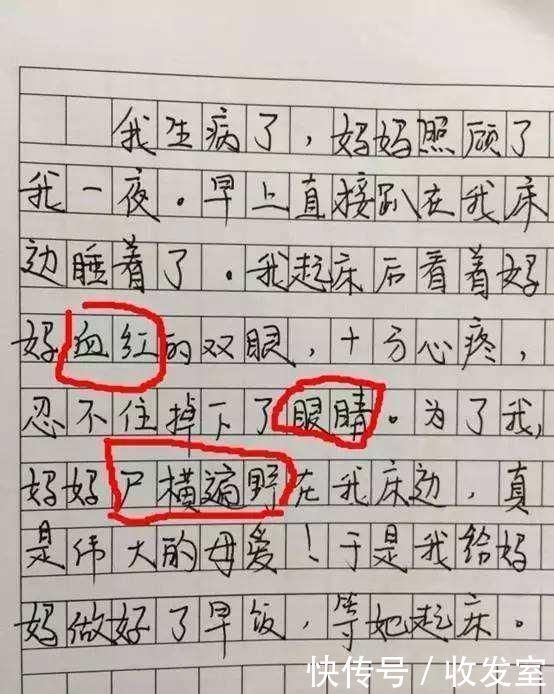 我生病了，妈妈照顾了
我一夜。早上直接趴在我床
边睡着了。我起床后看着妈
妈血红的双眼，十分心疼，
忍不住掉下了眼睛。为了我，
妈妈尸横遍野在我床边，真
是伟大的母爱！于是我给妈
妈做好了早饭，等她起床。
快传号/收发室